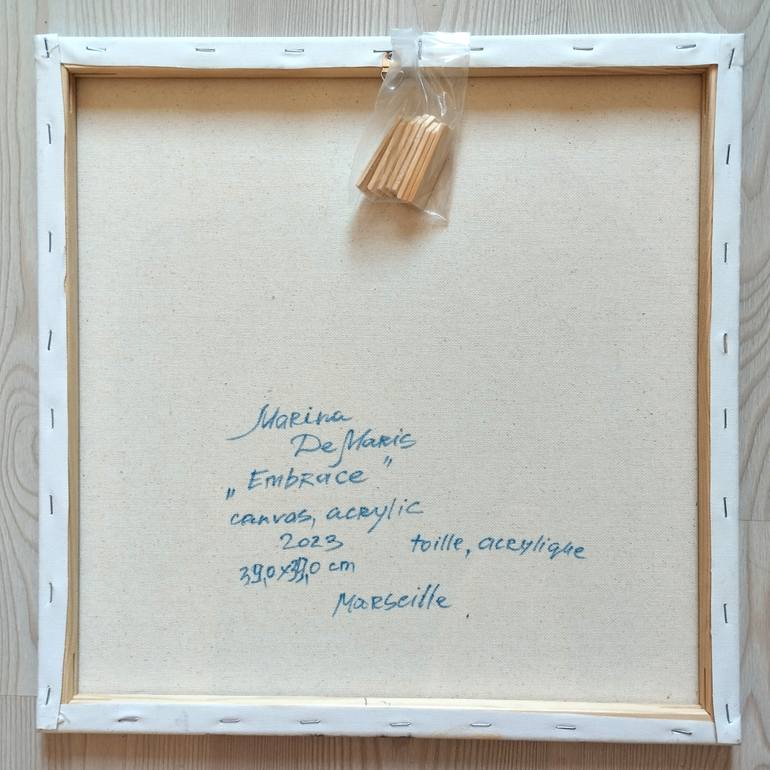 Marina
DeMaris
„Embrace"
canvas, acrylic
2023 toille, acrylique
39,0x39,0 cm
Marseille